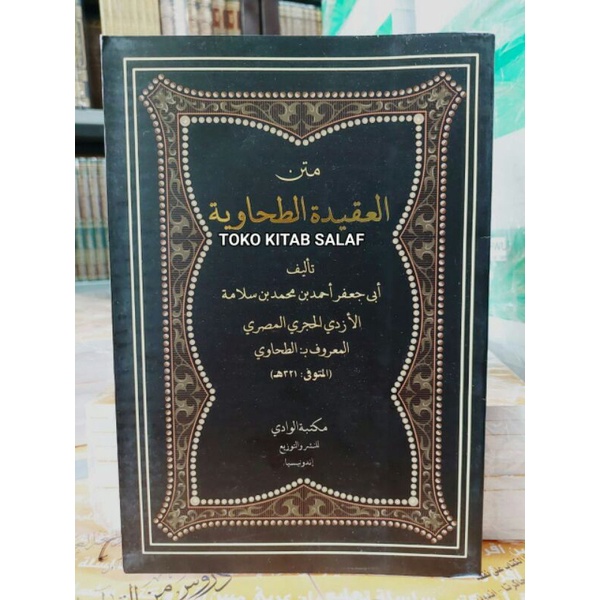 متن
العقيدة الطحاوية
TOKO KITAB SALAF
تأليف
أبي جعفر أحمد بن محمد بن سلامة
الأزدي الحجري المصري
المعروف بـ: الطحاوي
(المتوفى: ٣٢١هـ)
مكتبة الوادي
للنشر والتوزيع
إندونيسيا.
دروس من القرآن